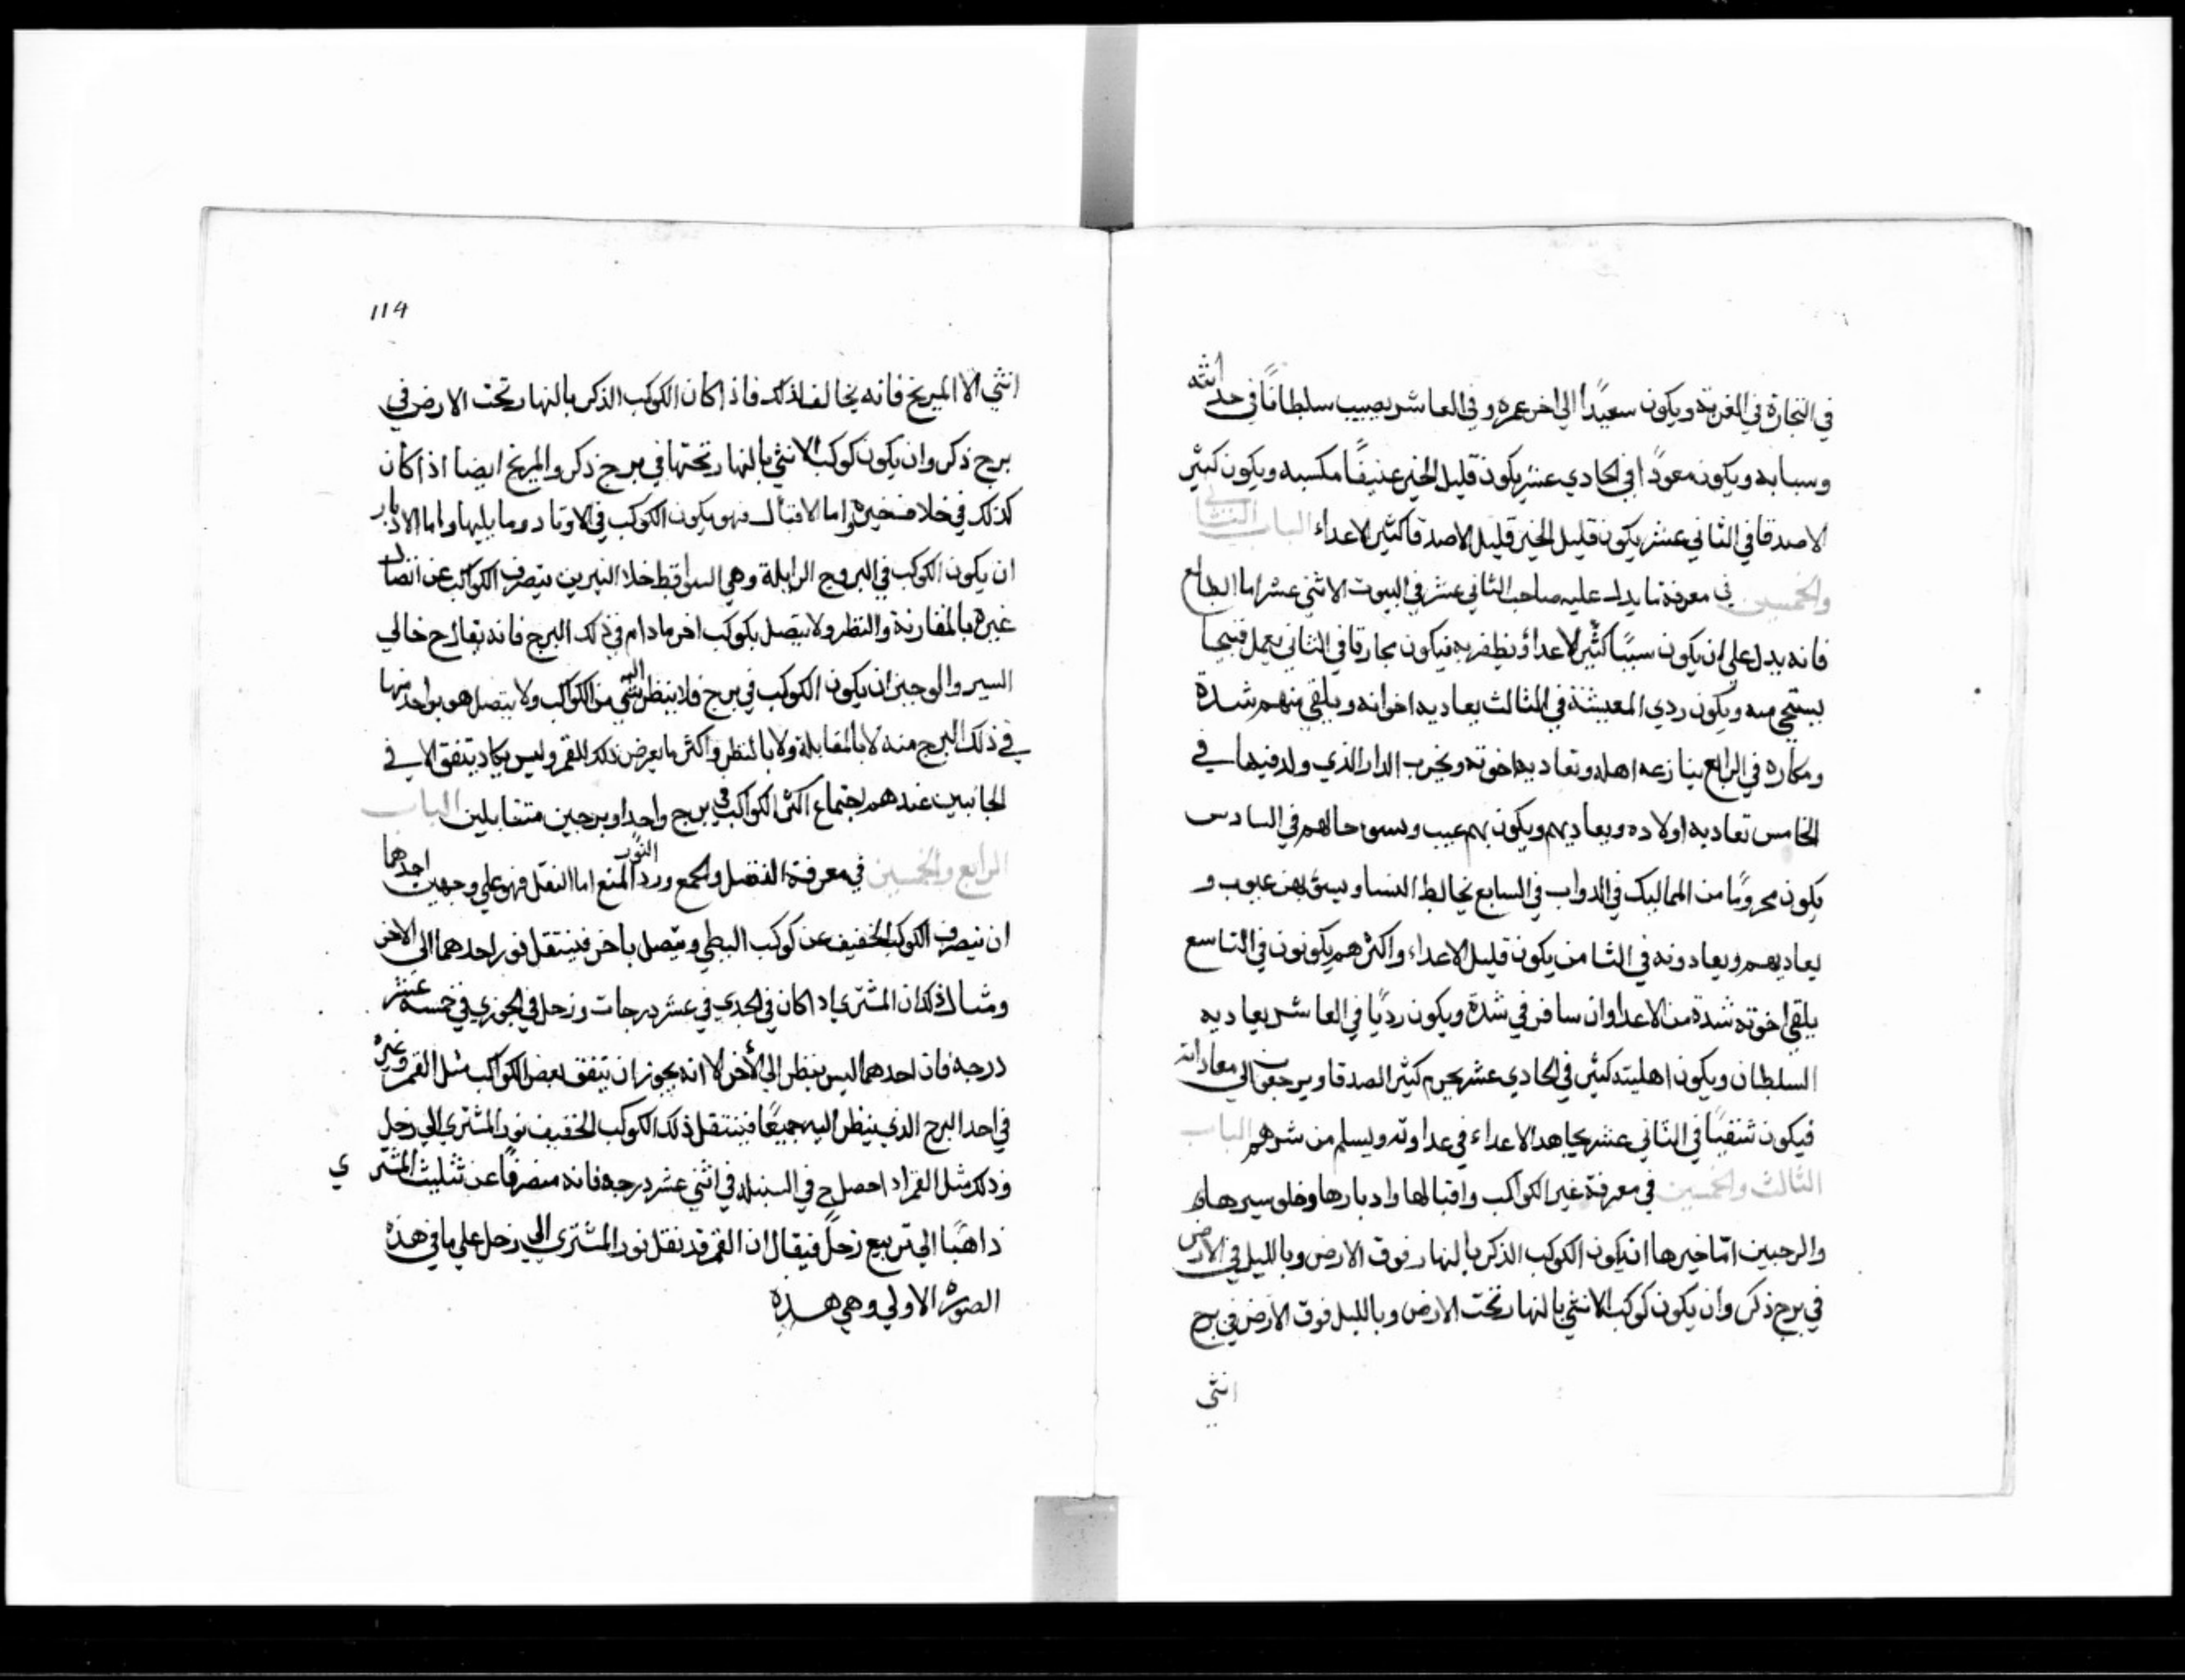 في التجارة في الغربة ويكون سعيدًا الي اخر عمره وفي العاشر يصيب سلطانًا في حداثته
وسبابه ويكون معودًا في الحادي عشر يكون قليل الخير عنيفًا مكسبه ويكون كثير
الاصدقا في الثاني عشر يكون قليل الخير قليل الاصدقا كثير الاعداء الباب الثاني
والخمسين في معرفة ما يدل عليه صاحب الثاني عشر في البيوت الاثني عشر اما الطالع
فانه يدل علي ان يكون كثير الاعداء فيكون محارقا في الثاني يعمل قبيحا
يستحي منه ويكون ردي المعيشة في الثالث يعاديه اخوانه ويلقي منهم شدة
ومكاره في الرابع ينازعه اهله وتعاديه اخوته ويخرب الدار الذي ولد فيها في
الخامس تعاديه اولاده ويعاديهم ويكون بهم عيب وتسو حالهم في السادس
يكون محرومًا من المماليك في الدواب في السابع يخالط النسا بهن عيوب و
يعاديهم ويعادونه في الثامن يكون قليل الاعداء واكثرهم يكونون في التاسع
يلقي اخوته شدة من الاعدا وان سافر في شدة ويكون رديًا في العاشر يعاديه
السلطان ويكون اهليته كثير في الحادي عشر يحرم كثير الصدقا ويرجعون الي معاداته
فيكون شقيًا في الثاني عشر يجاهد الاعداء في عداوته ويسلم من شرهم الباب
الثالث والخمسين في معرفة خير الكواكب واقبالها وادبارها وخلو سيرها
والرجبين امّا خيرها ان يكون الكوكب الذكر بالنهار فوق الارض وبالليل في الارض
في برج ذكر وان يكون كوكب الانثي بالنهار تحت الارض وبالليل فوق الارض في برج
انثي
114
انثي الا المريخ فانه يخالف لذلك فاذا كان الكوكب الذكر بالنهار تحت الارض في
برج ذكر وان يكون كوكب الانثي بالنهار تحتها في برج ذكر والمريخ ايضا اذا كان
كذلك في خلاف خيره واما الاقبال فهو يكون الكوكب في الاوتاد وما يليها واما الادبار
ان يكون الكوكب في البروج الزايلة وهي السواقط خلا النيرين ينصرف الكواكب عن اتصال
غيره بالمقارنة والنظر ولا يتصل بكوكب اخر ما دام في ذلك البرج فانه يقال ح خالي
السير والوجبز ان يكون الكوكب في برج فلا ينظر اليه شي من الكواكب ولا يتصل هو بواحد منها
في ذلك البرج منه لا بالمقابلة ولا بالنظر واكثر ما يعرض ذلك للقمر وليس يكاد يتفق الا في
الجانبين عندهم اجتماع اكثر الكواكب في برج واحد او برجين متقابلين الباب
الرابع والخمسين في معرفة النقل والجمع ورد النور المنع اما النقل فهو علي وجهين احدهما
ان ينصرف الكوكب الخفيف عن كوكب البطي ويتصل باخر فينتقل نور احدهما الى الاخر
ومثال ذلك ان المشتري اد اكان في الجدي في عشر درجات وزحل في الجوزي في خمسة عشر
درجه فان احدهما ليس ينظر الي الأخر لا انه يجوز ان يتفق بعض الكواكب مثل القمر وغيره
في احد البرج الذي ينظر اليه جميعًا فينتقل ذلك الكوكب الخفيف نور المشتري الي زحل
وذلك مثل القمر اد احصل ح في السنبله في اثني عشر درجه فانه منصرفًا عن تثليث المشتر ي
ذاهبًا الي تربيع زحل فيقال ان القمر قد نقل نور المشتري الي زحل علي ما في هذه
الصوره الاولي وهي هذه